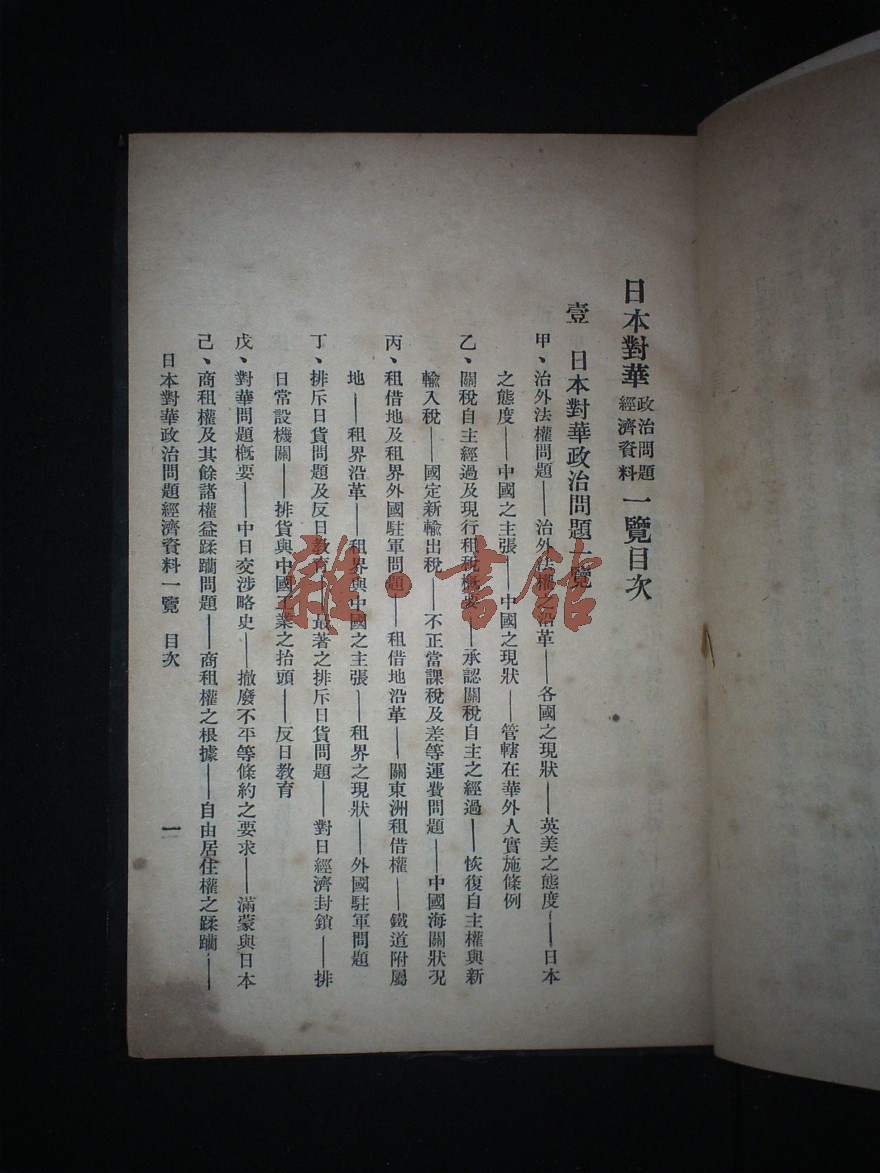 日本對華政治問題經濟資料一覽目次
壹 日本對華政治問題一覽
甲、治外法權問題——治外法權之沿革——各國之現狀——英美之態度——日本
之態度——中國之主張——中國之現狀——管轄在華外人實施條例
乙、關稅自主經過及現行租稅概要——承認關稅自主之經過——恢復自主權與新
輸入稅——國定新輸出稅——不正當課稅及差等運費問題——中國海關狀況
丙、租借地及租界外國駐軍問題——租借地沿革——關東洲租借權——鐵道附屬
地——租界沿革——租界與中國之主張——租界之現狀——外國駐軍問題
丁、排斥日貨問題及反日教育——最著之排斥日貨問題——對日經濟封鎖——排
日常設機關——排貨與中國工業之抬頭——反日教育
戊、對華問題概要——中日交涉略史——撤廢不平等條約之要求——滿蒙與日本
己、商租權及其餘諸權益蹂躪問題——商租權之根據——自由居住權之蹂躪——
日本對華政治問題經濟資料一覽 目次
一
雜·書館